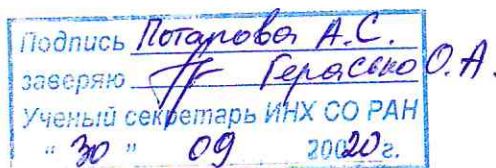 Подпись Потапова А.С.
заверяю Герасько О.А.
Ученый секретарь ИНХ СО РАН
" 30 " 09 20020г.